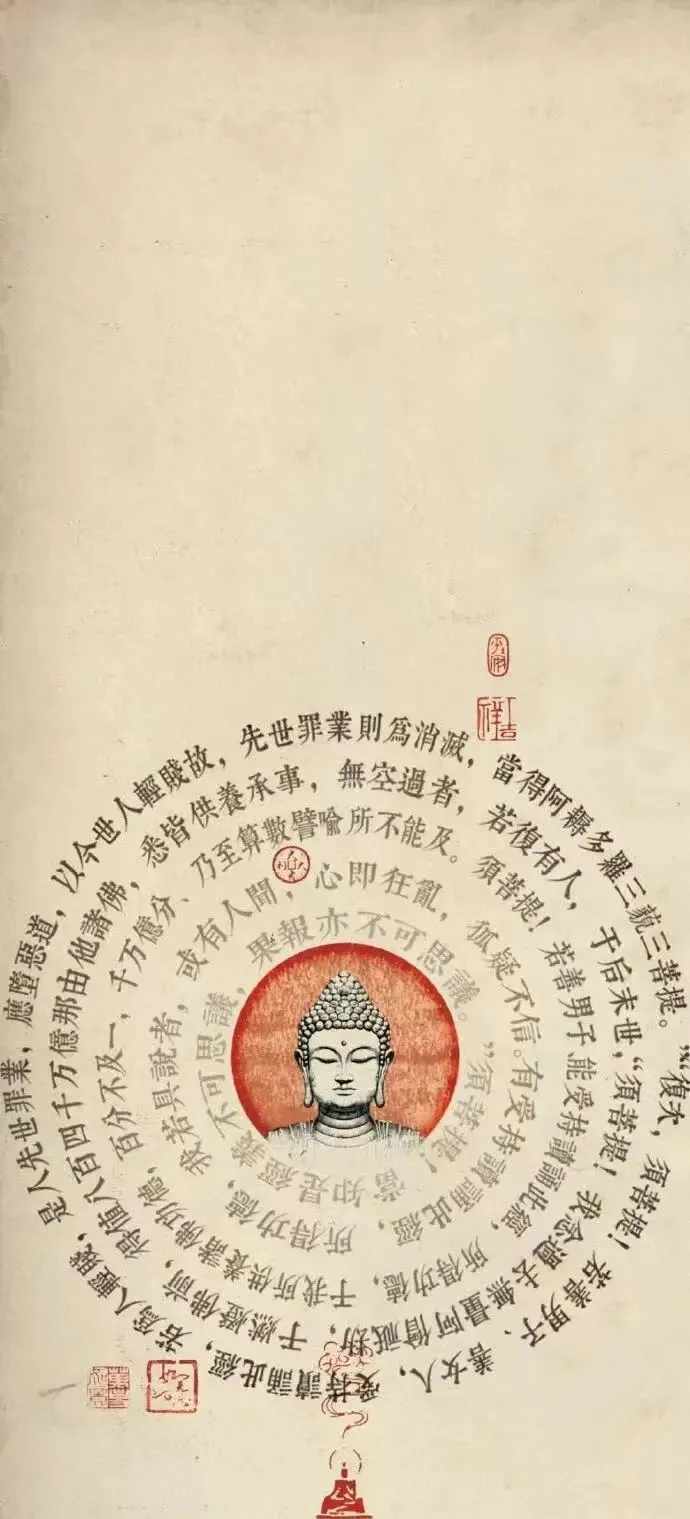 “復次，須菩提！若善男子、善女人，受持讀誦此經，若爲人輕賤，是人先世罪業，應墮惡道，以今世人輕賤故，先世罪業則爲消滅，當得阿耨多羅三藐三菩提。”
“須菩提！我念過去無量阿僧祇劫，于燃燈佛前，得值八百四千万億那由他諸佛，悉皆供養承事，無空過者，若復有人，于后末世，
能受持讀誦此經，所得功德，于我所供養諸佛功德，百分不及一，千万億分、乃至算數譬喻所不能及。須菩提！若善男子
有受持讀誦此經，所得功德，我若具說者，或有人聞，心即狂亂，狐疑不信。
“須菩提！當知是經義不可思議，果報亦不可思議。”